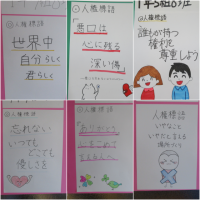 人権標語
世界中
自分らしく
君らしく
人権標語
悪口は
心に残る
深い傷
人権標語
誰もが持つ
権利を
尊重しよう
人権標語
忘れない
いつでも
どこでも
優しさを
人権標語
ありがとう
人権標語
いやなこと
いやだと言える